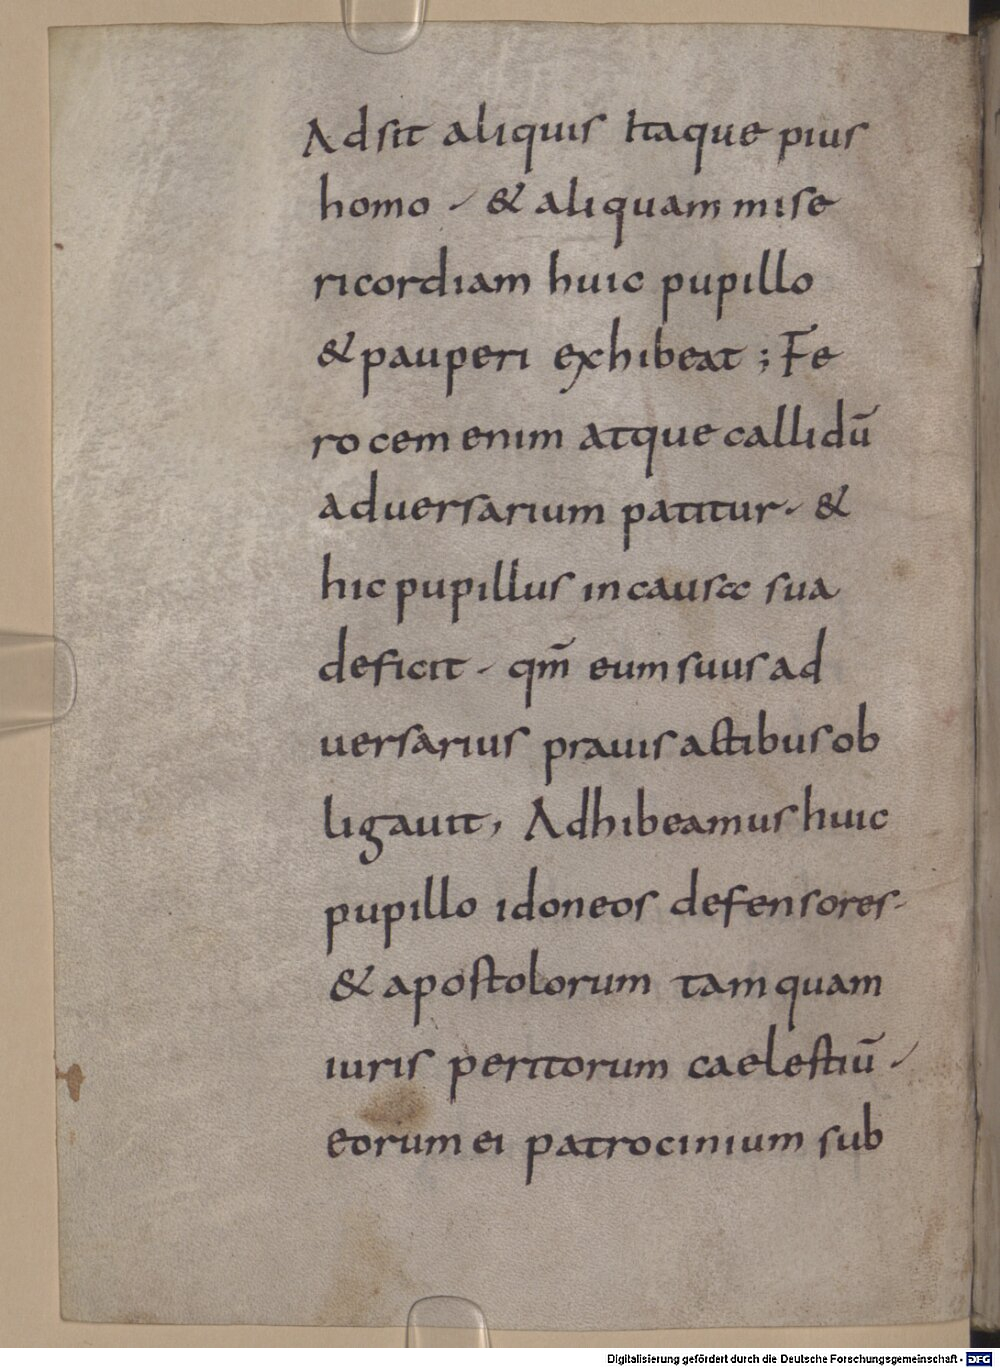 Adsit aliquis Itaque pius
homo · & aliquam mise
ricordiam huic pupillo
& pauperi exhibeat ; Fe
rocem enim atque callidū
aduersarium patitur · &
hic pupillus in causa sua
deficit · qm̄ eum suus ad
uersarius prauis actibus ob
ligauit, Adhibeamus huic
pupillo idoneos defensores ·
& apostolorum tamquam
iuris peritorum caelestiū ·
eorum ei patrocinium sub
Digitalisierung gefördert durch die Deutsche Forschungsgemeinschaft - DFG